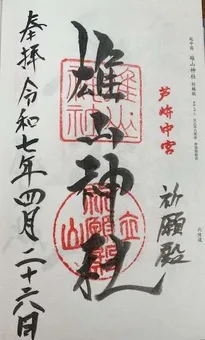 越中国 雄山神社
芦峅中宮
祈願殿
雄山神社
雄山神社
立山
祈願殿
奉拝 令和七年四月二十六日